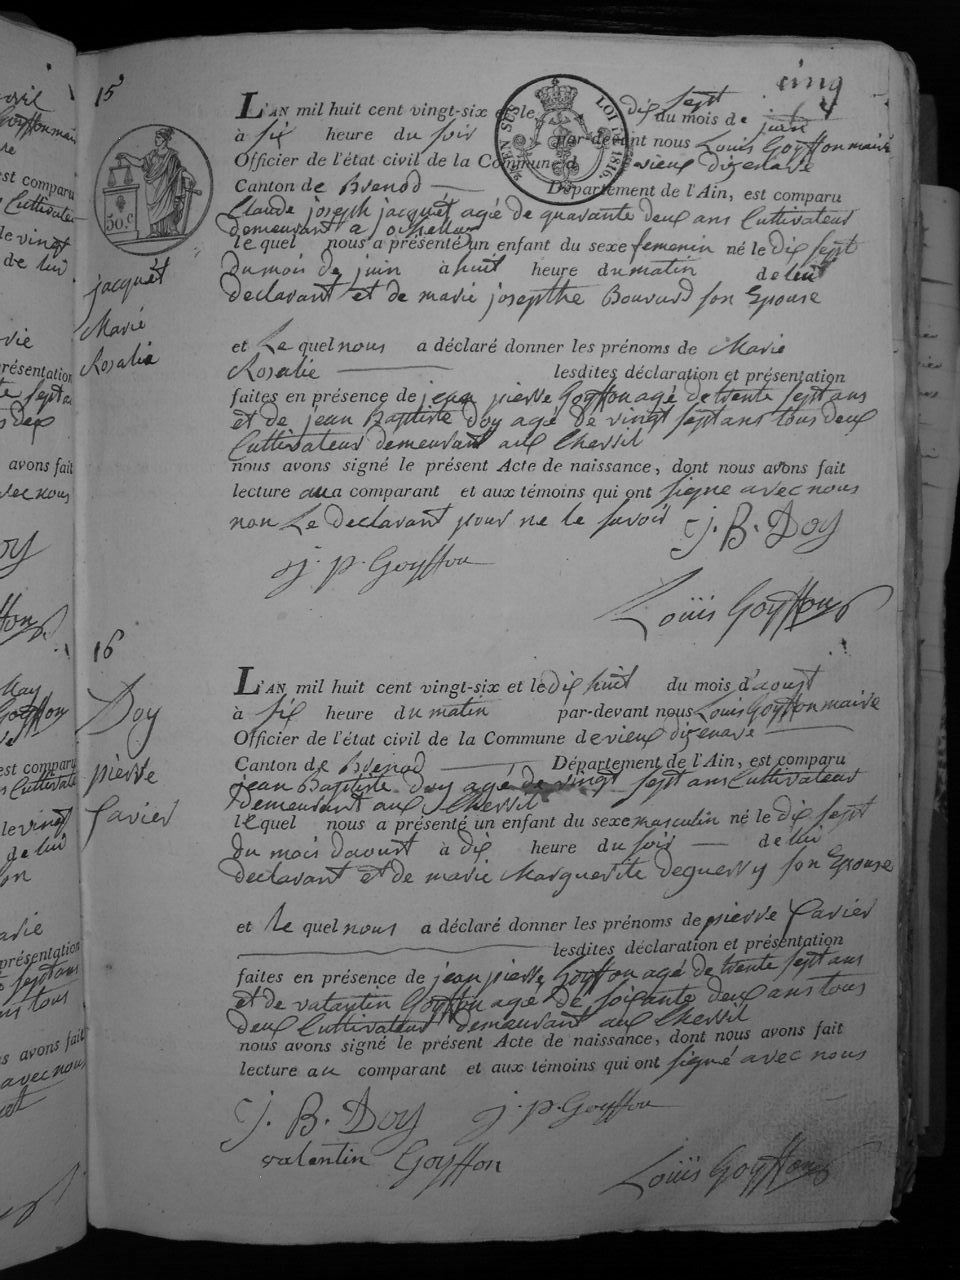 cinq
15
L'AN mil huit cent vingt-six et le dix sept du mois de juin
à six heure du soir par-devant nous Louis Goyffon maire
Officier de l'état civil de la Commune d vieux dizenave
Canton de Brenod Département de l'Ain, est comparu
Claude joseph jacquet agé de quarante deux ans Cultivateur
demeurant a
le quel nous a présenté un enfant du sexe femenin né le dix sept
du mois de juin à huit heure du matin de lui
declarant et de marie josepthe Bouvard son Epouse
50.c
2/10 EN SUS
LOI DE 1816
jacquet
Marie
Rosalie
et Le quel nous a déclaré donner les prénoms de Marie
Rosalie lesdites déclaration et présentation
faites en présence de jean pierre Goyffon agé de trente sept ans
et de jean Baptiste Doy agé de vingt sept ans tous deux
Cultivateur demeurant aux Chevril
nous avons signé le présent Acte de naissance, dont nous avons fait
lecture au a comparant et aux témoins qui ont signe avec nous
non Le declarant pour ne le savoir
j. B. Doy
j. p. Goyffon
Louïs Goyffon
16
L'AN mil huit cent vingt-six et le dix huit du mois d'aoust
à six heure du matin par-devant nous Louis Goyffon maire
Officier de l'état civil de la Commune de vieux dizenave
Canton de Brenod Département de l'Ain, est comparu
jean Baptiste Doy agé de vingt sept ans Cultivateur
demeurant aux Chevril
le quel nous a présenté un enfant du sexe masculin né le dix sept
du mois daoust à dix heure du soir de lui
declarant et de marie Marguerite deguerry son Epouse
Doy
pierre
Cavier
et le quel nous a déclaré donner les prénoms de pierre Cavier
lesdites déclaration et présentation
faites en présence de jean pierre Goyffon agé de trente sept ans
et de valantin Goyffon agé de soixante deux ans tous
deux Cultivateur demeurant aux Chevril
nous avons signé le présent Acte de naissance, dont nous avons fait
lecture au comparant et aux témoins qui ont signé avec nous
j. B. Doy j. p. Goyffon
valentin Goyffon
Louïs Goyffon